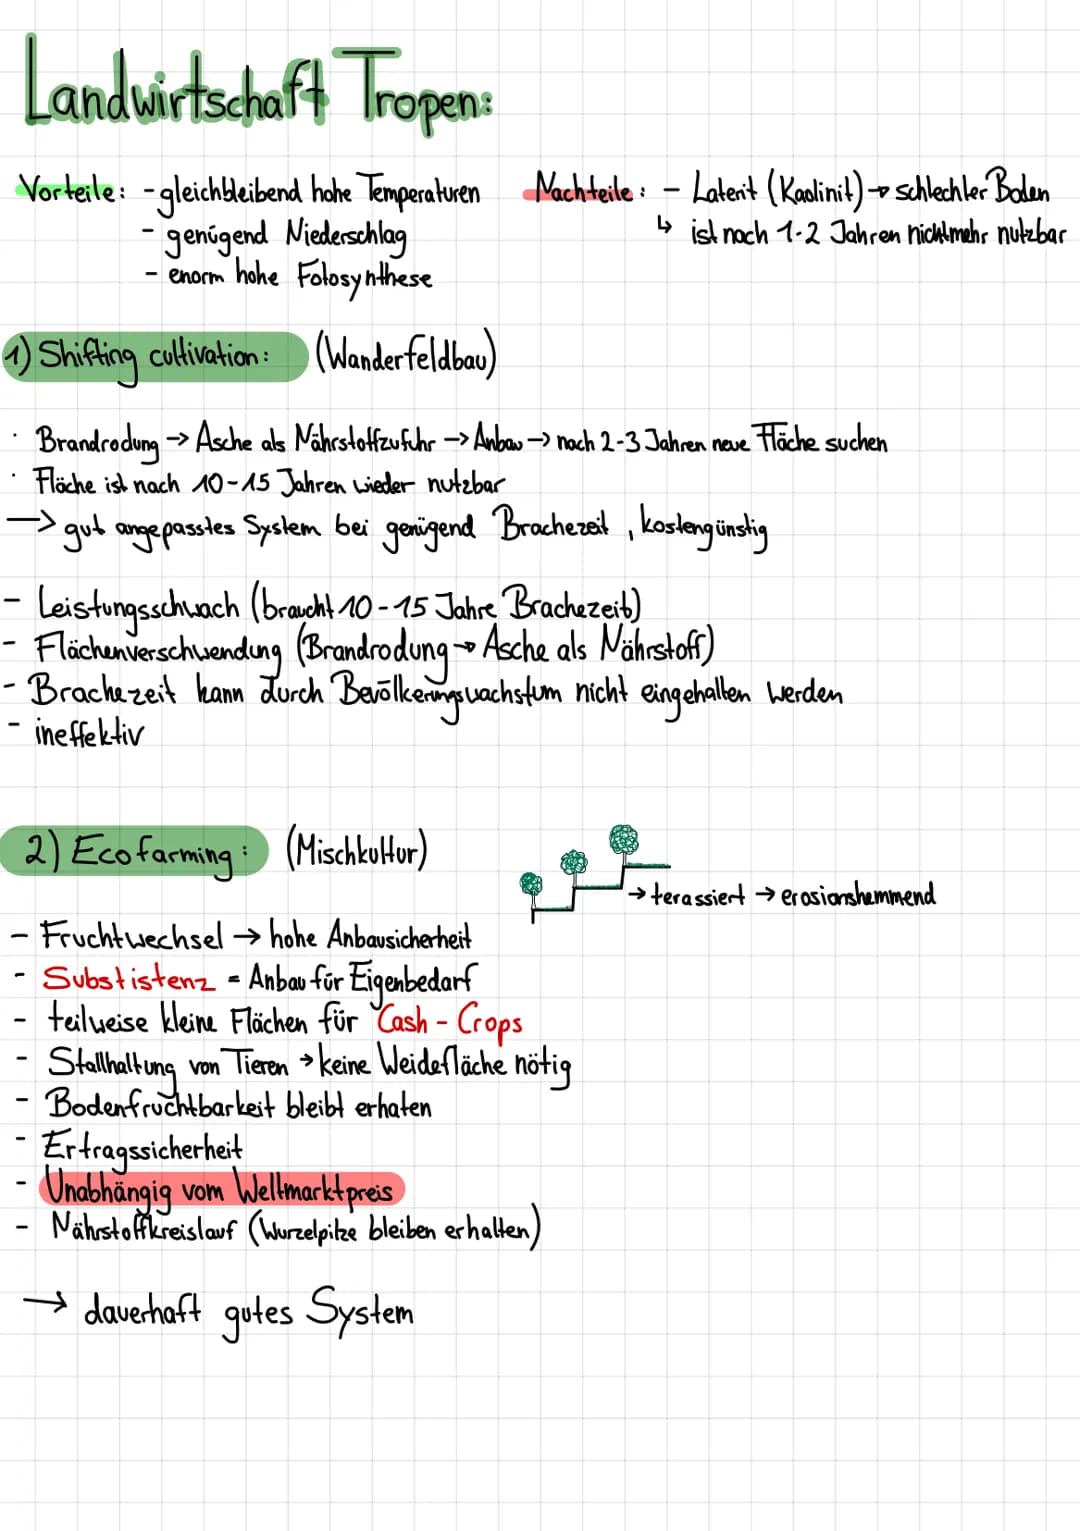 Landwirtschaft Tropen:
Vorteile: - gleichbleibend hohe Temperaturen
- genügend Niederschlag
- enorm hohe Fotosynthese
Nachteile: - Laterit (Kaolinit) → schlechter Boden
↳ ist nach 1-2 Jahren nicht mehr nutzbar
1) Shifting cultivation: (Wanderfeldbau)
· Brandrodung → Asche als Nährstoffzufuhr → Anbau → nach 2-3 Jahren neue Fläche suchen
· Fläche ist nach 10-15 Jahren wieder nutzbar
→ gut angepasstes System bei genügend Brachezeit, kostengünstig
- Leistungsschwach (braucht 10-15 Jahre Brachezeit)
- Flächenverschwendung (Brandrodung → Asche als Nährstoff)
- Brachezeit kann durch Bevölkerungswachstum nicht eingehalten werden
- ineffektiv
2) Ecofarming: (Mischkultur)
→ terassiert → erosionshemmend
- Fruchtwechsel → hohe Anbausicherheit
- Substistenz = Anbau für Eigenbedarf
- teilweise kleine Flächen für Cash-Crops
- Stallhaltung von Tieren → keine Weidefläche nötig
- Bodenfruchtbarkeit bleibt erhaten
- Ertragssicherheit
- Unabhängig vom Weltmarktpreis
- Nährstoffkreislauf (Wurzelpilze bleiben erhalten)
→ dauerhaft gutes System